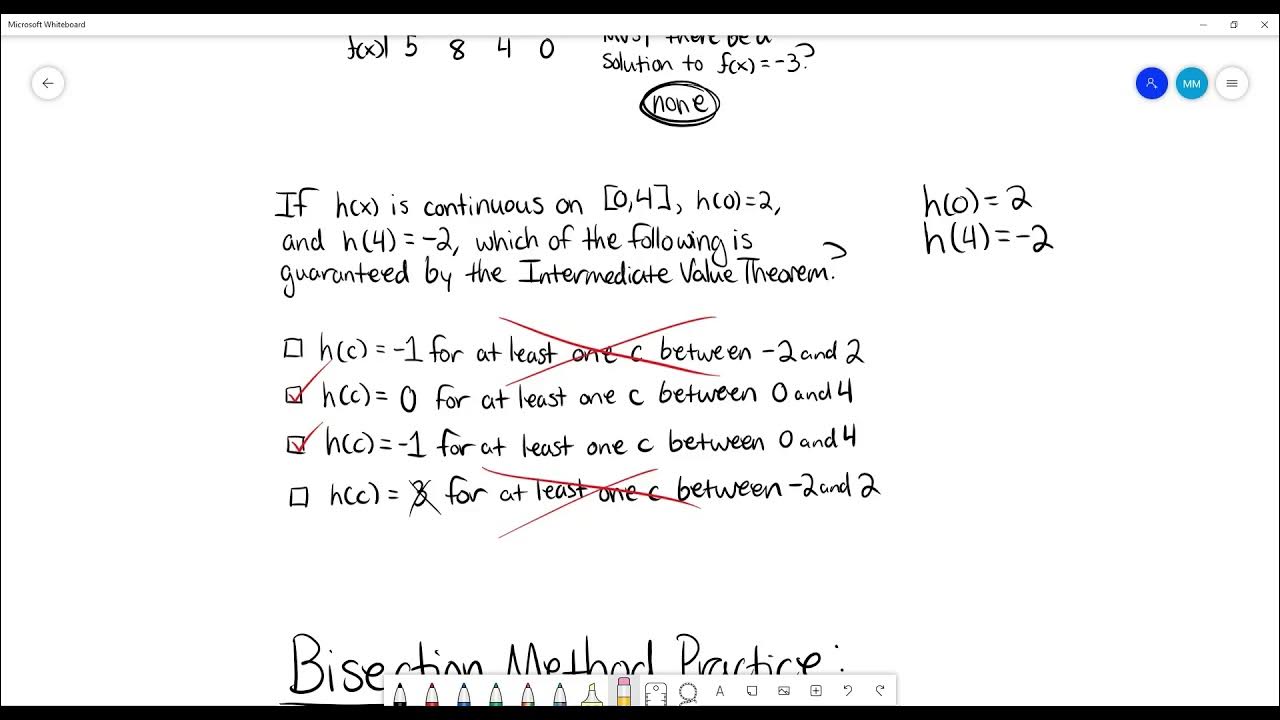 Microsoft Whiteboard
f(x)| 5 8 4 0
Must there be a
solution to f(x) = -3?
none
MM
If h(x) is continuous on [0,4], h(0)=2,
and h(4) = -2, which of the following is
guaranteed by the Intermediate Value Theorem?
h(0) = 2
h(4) = -2
h(c) = -1 for at least one c between -2 and 2
h(c) = 0 for at least one c between 0 and 4
h(c) = -1 for at least one c between 0 and 4
h(c) = 3 for at least one c between -2 and 2
Bisection Method Practice:
A